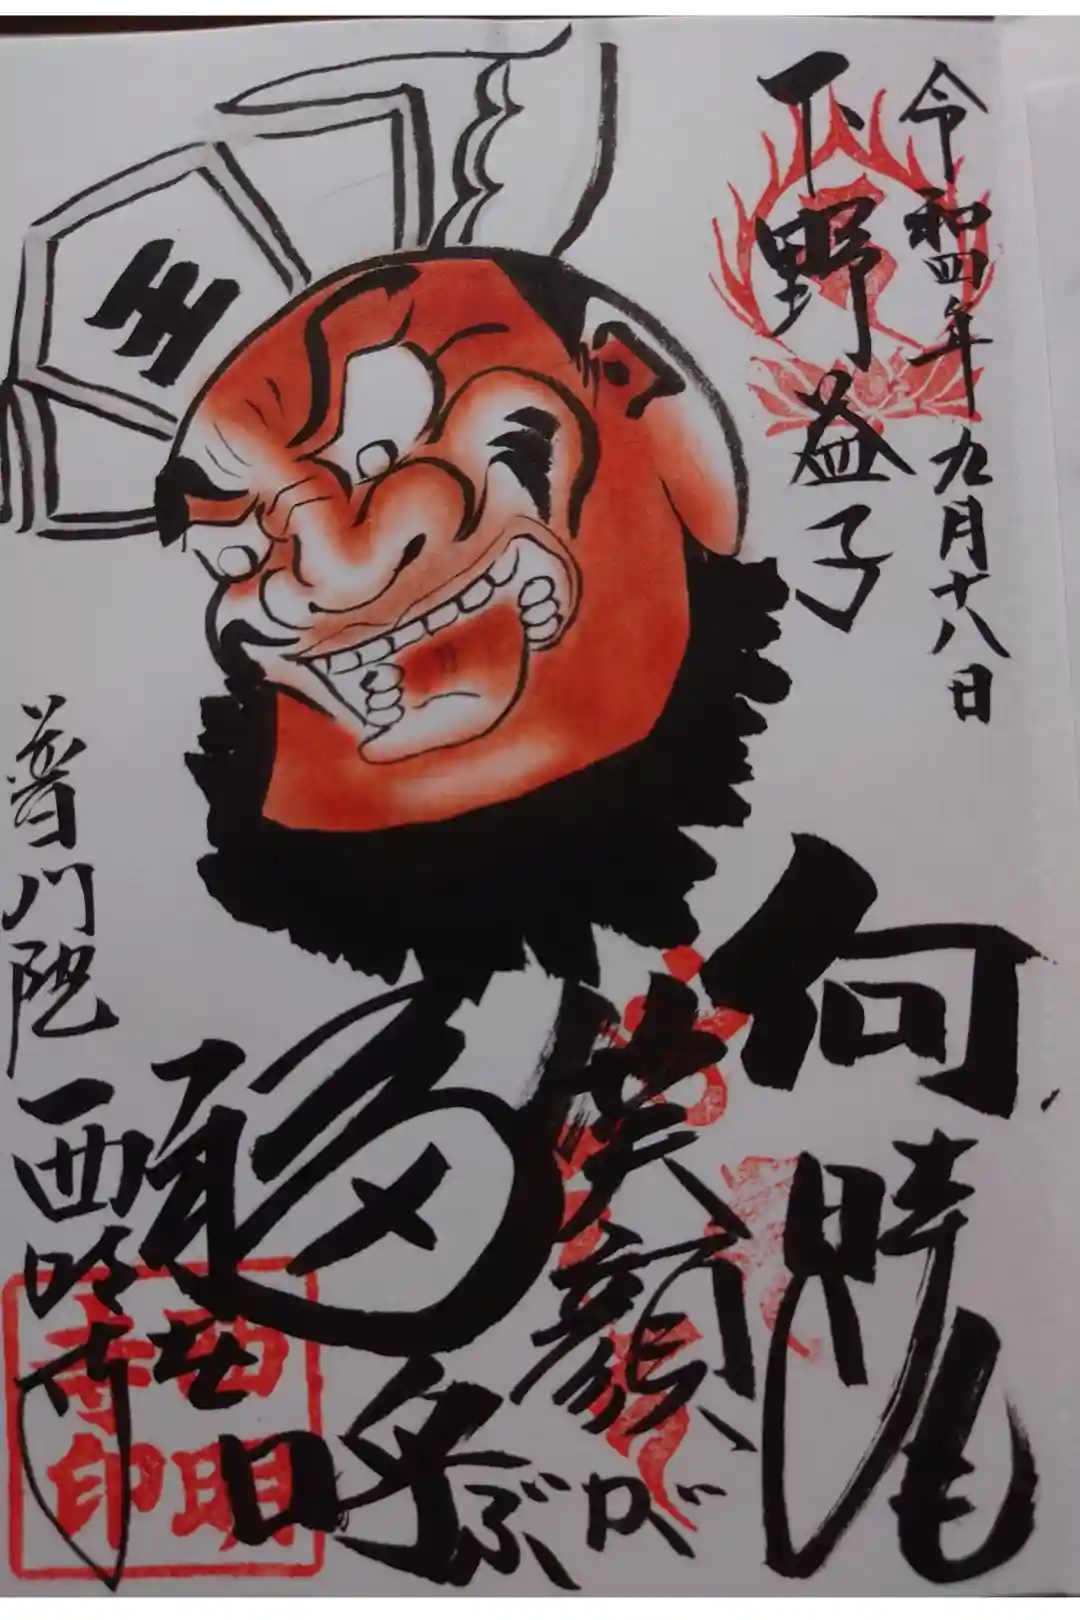 令和四年九月十八日
下野益子
王
何時も
笑顔が
呼ぶ
普門院西明寺
西明
寺印